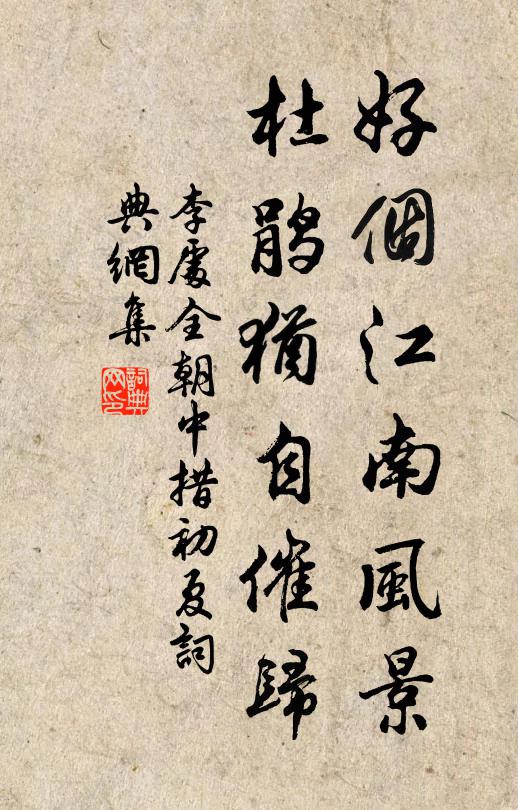 好個江南風景
杜鵑猶自催歸
李處全朝中措初夏詞
典網集
詞典網印